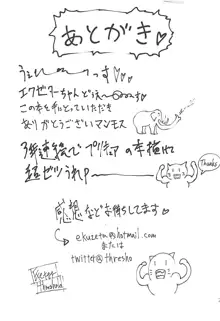 あとがき♡
うぇぃ〜〜〜っす♡♡
エクゼターちゃんどぇ〜〜す
この本を手にとっていただき
ありがとうございマンモス
3年連続でプリキュアの本描けて
超ゼツうれP〜
Thanks
感想などお待ちしてます♡
ekuzeta@hotmail.com
または
twitter@thresho